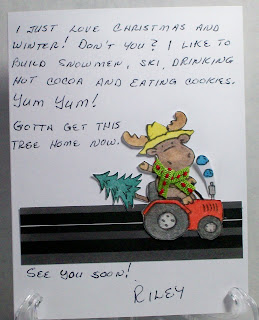 I JUST LOVE CHRISTMAS AND
WINTER! DON'T YOU? I LIKE TO
BUILD SNOWMEN, SKI, DRINKING
HOT COCOA AND EATING COOKIES.
YUM YUM!
GOTTA GET THIS
TREE HOME NOW.
SEE YOU SOON!
RILEY